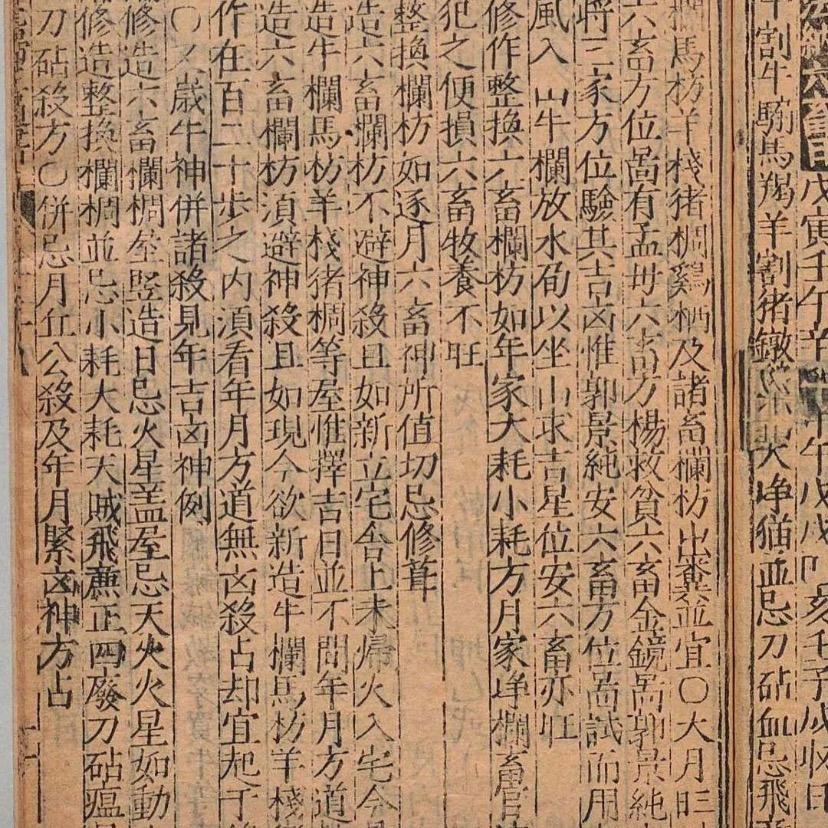 割牛騸馬羯羊割猪鐓
犬净猫並忌刀砧血忌飛
欄馬枋羊棧猪椆鷄栖及諸畜欄枋出糞並宜〇大月
六畜方位啚有孟丗六畜方楊救貧六畜金鏡啚郭景純
將三家方位驗其吉凶惟郭景純安六畜方位啚試而用
風入山牛欄放水訇以坐山求吉星位安六畜亦旺
修作整換六畜欄枋如年家大耗小耗方月家净欄畜官
犯之便損六畜牧養不旺
整換欄枋如逐月六畜神所值切忌修葺
造六畜欄枋不避神殺且如新立宅舍上未歸火入宅今
造牛欄馬枋羊棧猪椆等屋惟擇吉日並不問年月方道
造六畜欄枋湏避神殺且如現今欲新造牛欄馬枋羊棧
作在百二十步之内湏看年月方道無凶殺占却宜起手
〇又歲牛神併諸殺見年吉凶神例
修造六畜欄椆屋竪造日忌火星盖屋忌天火火星如動
修造整換欄椆並忌小耗大耗天賊飛亷正四廢刀砧瘟
刀砧殺方〇併忌月丘公殺及年月緊凶神方占